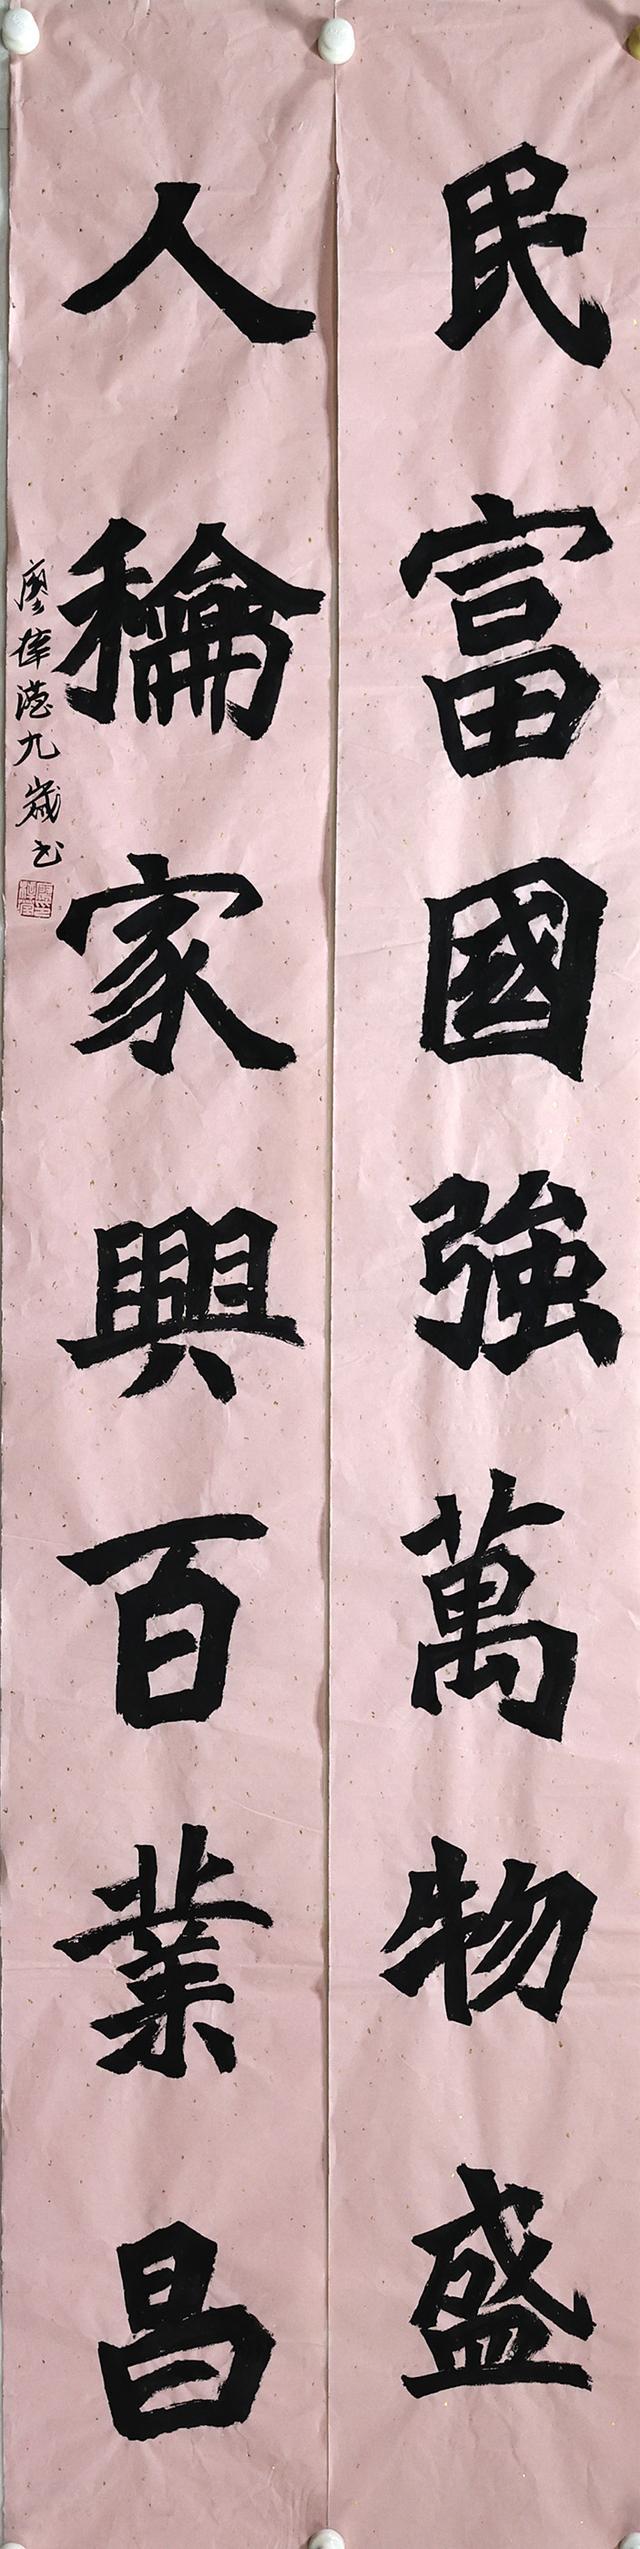 民富國強萬物盛
人龢家興百業昌
廖梓滢九歲书